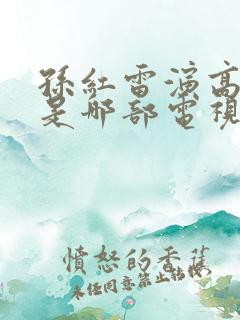 孫紅雷演高
是哪部電視
憤怒的香蕉
未經同意禁止轉載